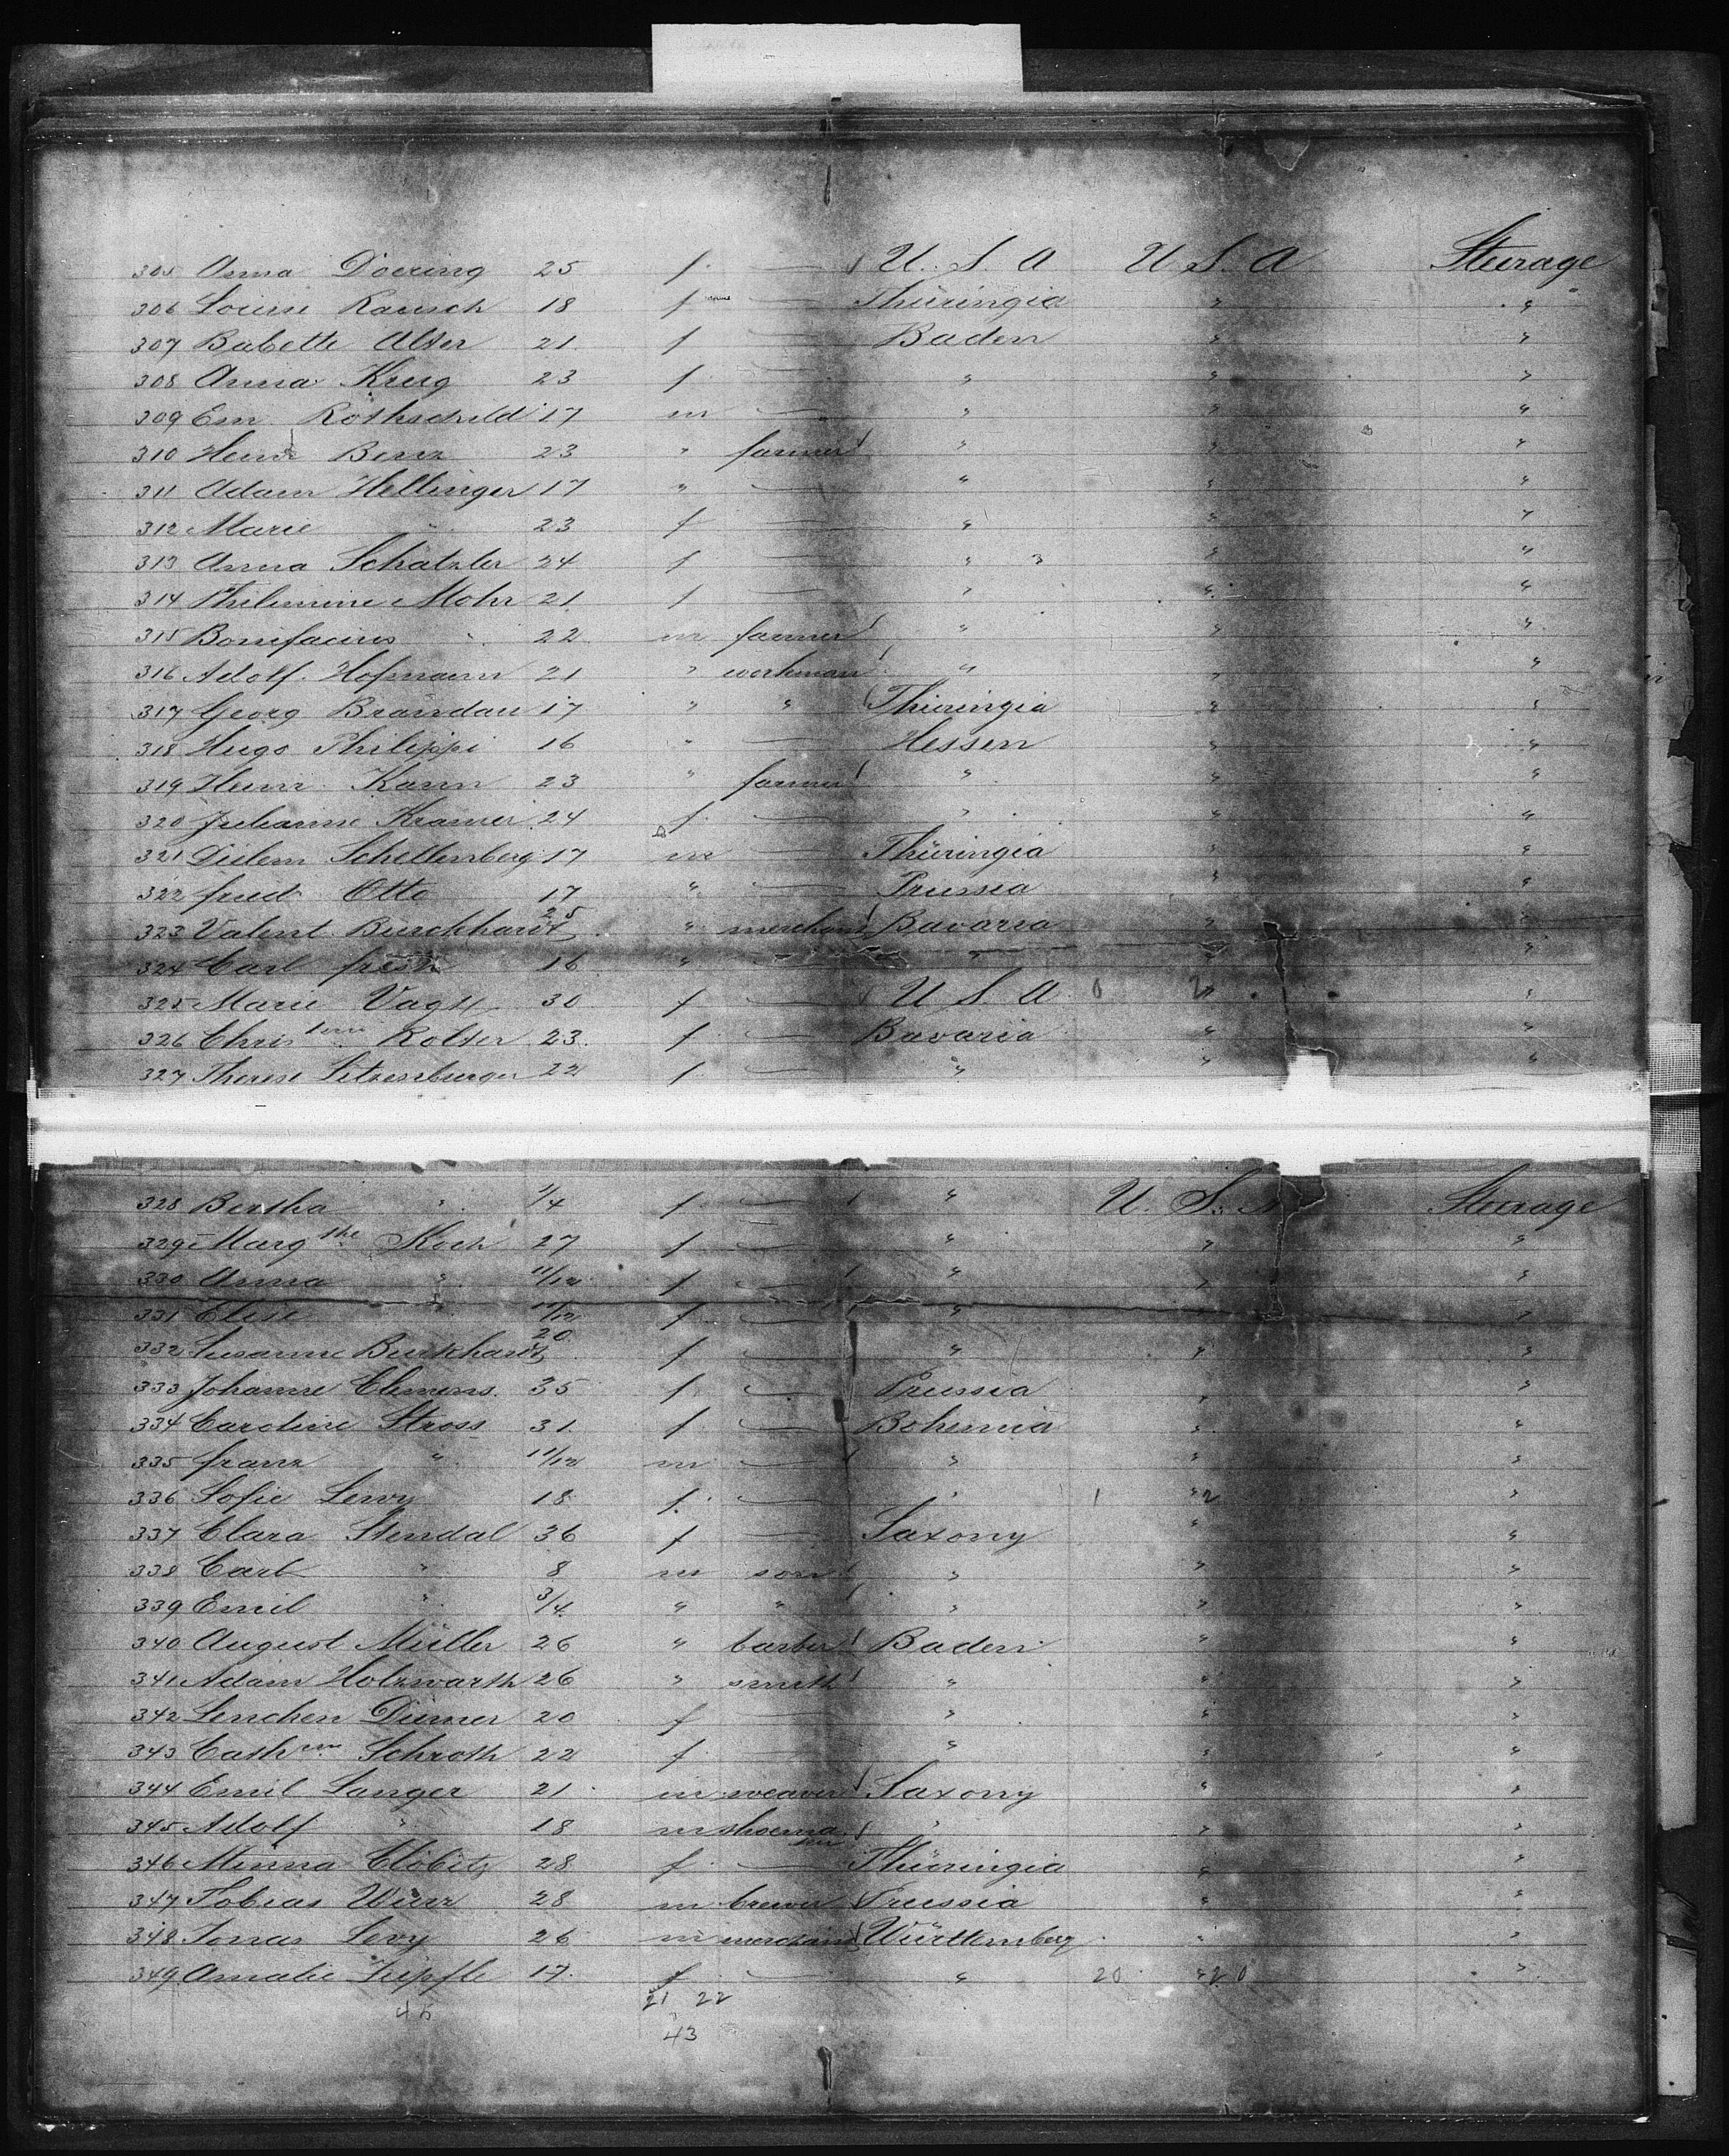 305 Anna Doering 25 f. — U. S. A U S. A Steerage
306 Louise Rausch 18 f — Thüringia " "
307 Babette Alter 21 f — Baden " "
308 Anna Krug 23 f. — " " "
309 Em. Rothschild 17 m — " " "
310 Heinr Benz 23 " farmer " " "
311 Adam Hellinger 17 " — " " "
312 Marie " 23 f — " " "
313 Anna Schätzler 24 f — " " "
314 Philimine Mohr 21 f — " " "
315 Bonifacius " 22 m farmer " " "
316 Adolf Hofmann 21 " workman " " "
317 Georg Brandau 17 " " Thüringia " "
318 Hugo Philippi 16 " — Hessen " "
319 Heinr. Kann 23 " farmer " " "
320 Julianne Kramer 24 f. — " " "
321 Schellenberg 17 m — Thüringia " "
322 fried Otto 17 " — Prussia " "
323 Valent Burckhardt 25 " merchant Bavaria " "
324 Carl 16 " — " " "
325 Marie Vagt 30 f — U S. A. " "
326 Christine Rolter 23. f. — Bavaria " "
327 Therese Litzenburger 22 f. — " " "
328 Bertha " 1/4 f. — " U. S. A Steerage
329 Margthe Koch 27 f — " " "
330 Anna " 11/12 f — " " "
331 Elise " 11/12 f. — " " "
332 Susanne Burkhardt 20 f — " " "
333 Johanne Clemens. 35 f. — Prussia " "
334 Caroline Stross 31. f. — Bohemia " "
335 franz " 11/12 m — " " "
336 Sofie Levy 18 f. — " 1 " 2 "
337 Clara Stendal 36 f — Saxony " "
338 Carl " 8 m son " " "
339 Emil " 3/4 " " " " "
340 August Müller 26 " barber Baden " "
341 Adam Holzwarth 26 " smith " " "
342 Lenchen Diemer 20 f — " " "
343 Cathne Schroth 22 f. — " " "
344 Emil Langer 21 m weaver Saxony " "
345 Adolf " 18 m shoemaker " " "
346 Minna Clobitz 28 f. — Thüringia " "
347 Tobias Wurz 28 m brewer Prussia " "
348 Jonas Levy 26 m merchant Württemberg " "
349 Amalie 17. f — " 20 " 20 "
45 21 22
43